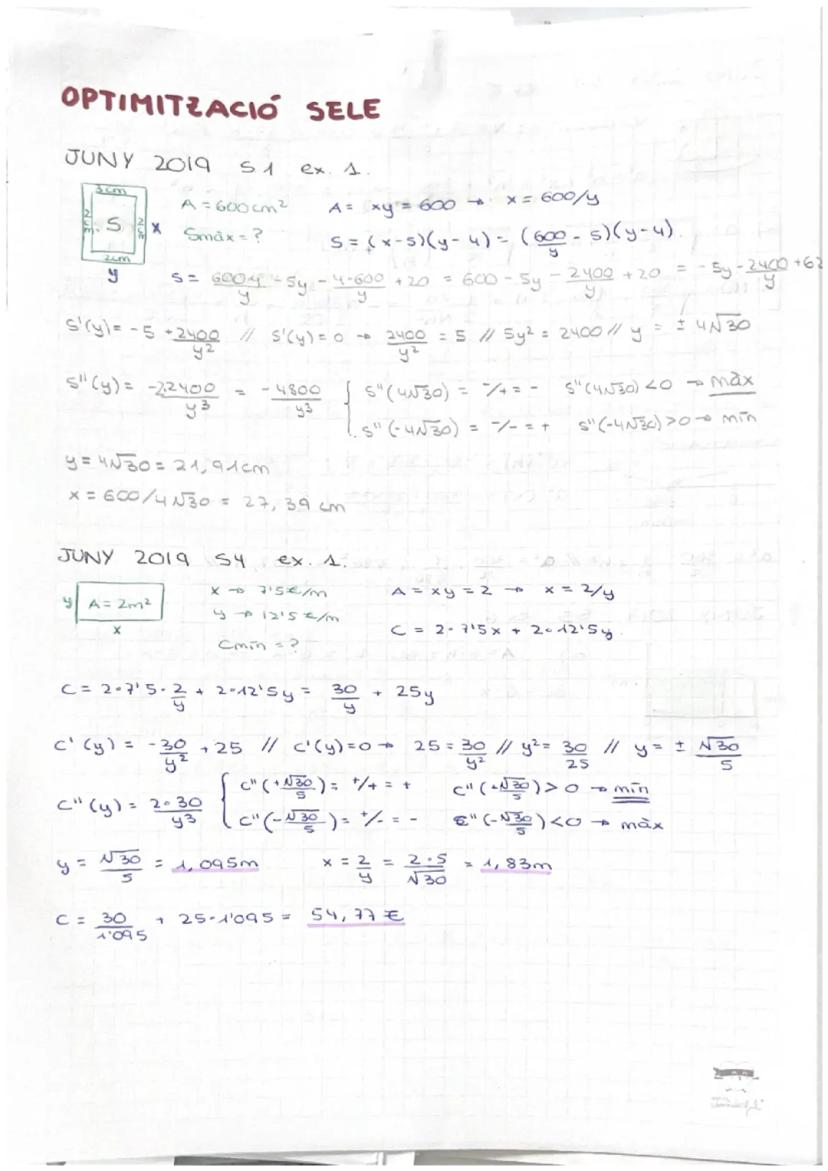 OPTIMITZACIÓ SELE
JUNY 2019 S1 ex. 1.
3cm
2cm S 2cm x
2cm
y
A = 600 cm² A = xy = 600 → x = 600/y
Smàx = ? S = (x-5)(y-4) = (600/y - 5)(y-4).
S = 600y/y - 5y - 4·600/y + 20 = 600 - 5y - 2400/y + 20 = -5y - 2400/y + 62
S'(y) = -5 + 2400/y² // S'(y) = 0 → 2400/y² = 5 // 5y² = 2400 // y = ± 4√30
S''(y) = -2·2400/y³ = -4800/y³ { S''(4√30) = -/+ = - S''(4√30) < 0 → màx
S''(-4√30) = -/- = + S''(-4√30) > 0 → mín
y = 4√30 = 21,91 cm
x = 600/4√30 = 27,39 cm
JUNY 2019 S4 ex. 1.
y A = 2m²
x
x → 7'5€/m A = xy = 2 → x = 2/y
y → 12'5€/m
Cmín = ? C = 2·7'5x + 2·12'5y.
C = 2·7'5·2/y + 2·12'5y = 30/y + 25y
C'(y) = -30/y² + 25 // C'(y) = 0 → 25 = 30/y² // y² = 30/25 // y = ± √30/5
C''(y) = 2·30/y³ { C''(+√30/5) = +/+ = + C''(+√30/5) > 0 → mín
C''(-√30/5) = +/- = - C''(-√30/5) < 0 → màx
y = √30/5 = 1,095m x = 2/y = 2·5/√30 = 1,83m
C = 30/1'095 + 25·1'095 = 54,77 €